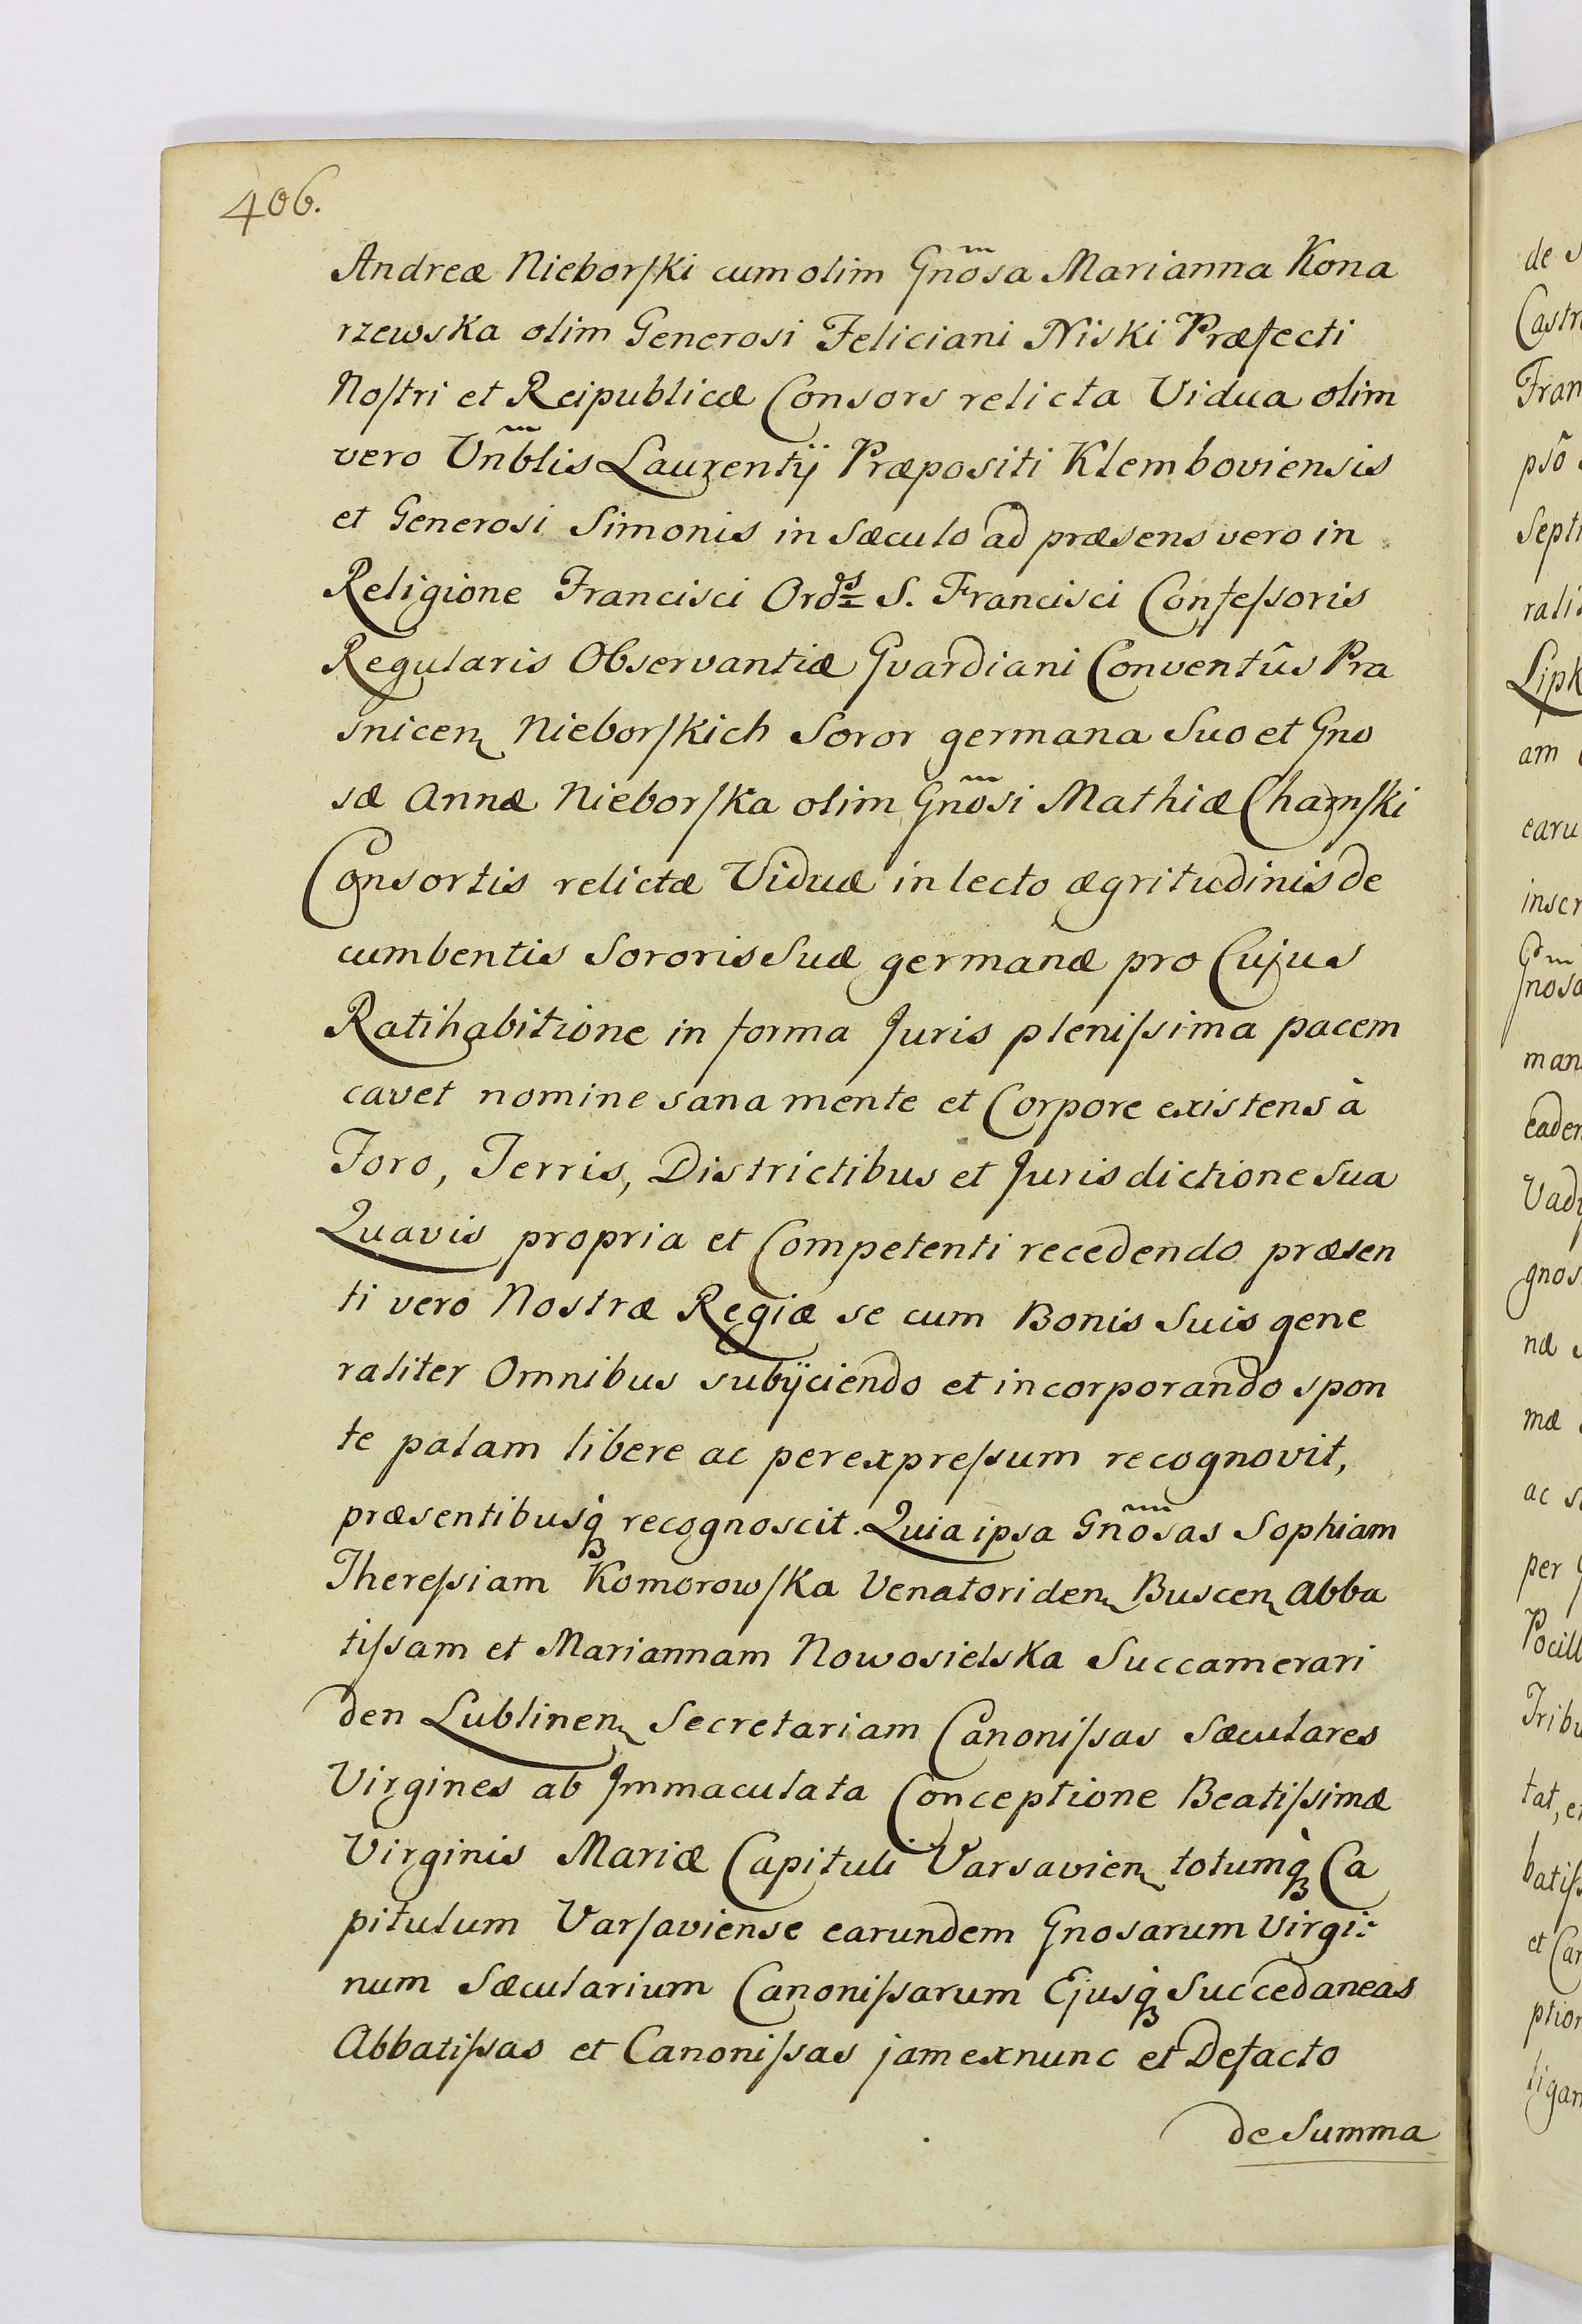 406.
Andreæ Nieborſki cum olim Gnõsa Marianna Kona
rzewska olim Generosi Feliciani Niski Præfecti
Noſtri et Reipublicæ Consors relicta Vidua olim
vero Vñblis Laurentij Præpositi Klemboviensis
et Generosi Simonis in Sæculo ad præsens vero in
Religione Francisci Ordˢ S. Francisci Confeſsoris
Regularis Observantiæ Gvardiani Conventûs Pra
snicen Nieborſkich Soror germana Suo et Gno
sæ Annæ Nieborſka olim Gnõsi Mathiæ Charnſki
Consortis relictæ Viduæ in lecto ægritudinis de
cumbentis Sororis Suæ germanæ pro Cujus
Ratihabitione in forma Juris pleniſsima pacem
cavet nomine sana mente et Corpore existens à
Foro, Terris, Districtibus et Jurisdictione Sua
Quavis propria et Competenti recedendo præsen
ti vero Nostræ Regiæ se cum Bonis Suis gene
raliter Omnibus subijciendo et incorporando spon
te palam libere ac per expreſsum recognovit,
præsentibusq́ꝫ recognoscit. Quia ipsa Gnõsas Sophiam
Thereſsiam Komorowſka Venatoriden Buscen Abba
tiſsam et Mariannam Nowosielska Succamerari
den Lublinen Secretariam Canoniſsas Sæculares
Virgines ab Jmmaculata Conceptione Beatiſsimæ
Virginis Mariæ Capituli Varsavien totumq̀ꝫ Ca
pitulum Varſaviense earundem Gnosarum Virgi:
num Sæcularium Canoniſsarum Ejusq́ꝫ Succedaneas
Abbatiſsas et Canoniſsas jam ex nunc et De facto
de Summa
de
Castr
Fran
psõ
Septi
rali
Lipk
am
earu
inscr
Gnosa
man
eade
Vady
gnos
næ
mæ
ac s
per
Pocill
Tribu
tat, e
batiſs
et Can
ption
ligan